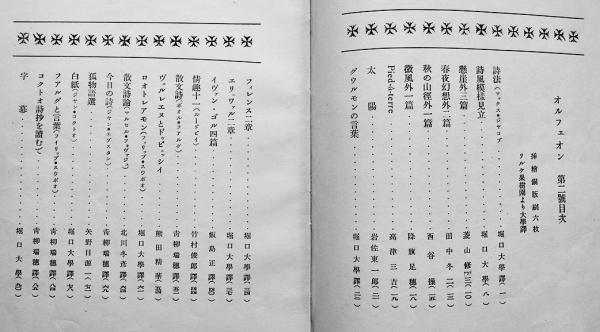 オルフェオン 第二號目次
挿繪銅版刷六枚
リルケ果樹園より大學譯
詩法(マックス・ジャコブ)・・・・・堀口大學譯(一)
詩風模樣見立・・・・・堀口大學(八)
懸崖外三篇・・・・・菱山修三(一〇)
春夜幻想外二篇・・・・・田中冬二(一三)
秋の山徑外一篇・・・・・西谷操(一五)
微風外一篇・・・・・降旗足穗(一八)
Pied-à-terre・・・・・高津三吉(一九)
太陽・・・・・岩佐東一郎(二一)
グウルモンの言葉・・・・・堀口大學譯
フィレンス二章・・・・・堀口大學譯
エリ・ワル二章・・・・・堀口大學譯
イヴァン・ゴル四篇・・・・・飯島正譯
情趣十一・・・・・竹村俊郎譯
散文詩(ポオル・ファルグ)・・・・・青柳瑞穗譯
ヴェルレエヌとドゥビュッシイ・・・・・熊田精華
ロオトレアモン(フィリップ・スウポオ)・・・・・堀口大學譯
散文詩論・・・・・北川冬彦譯
今日の詩(ジャン・エプスタン)・・・・・青柳瑞穗譯
狐物語選・・・・・矢野目源一
白紙(ジャン・コクトオ)・・・・・堀口大學譯
ファルグと言葉(フィリップ・スウポオ)・・・・・青柳瑞穗譯
コクトオ詩抄を讀むで・・・・・青柳瑞穗
字幕・・・・・堀口大學